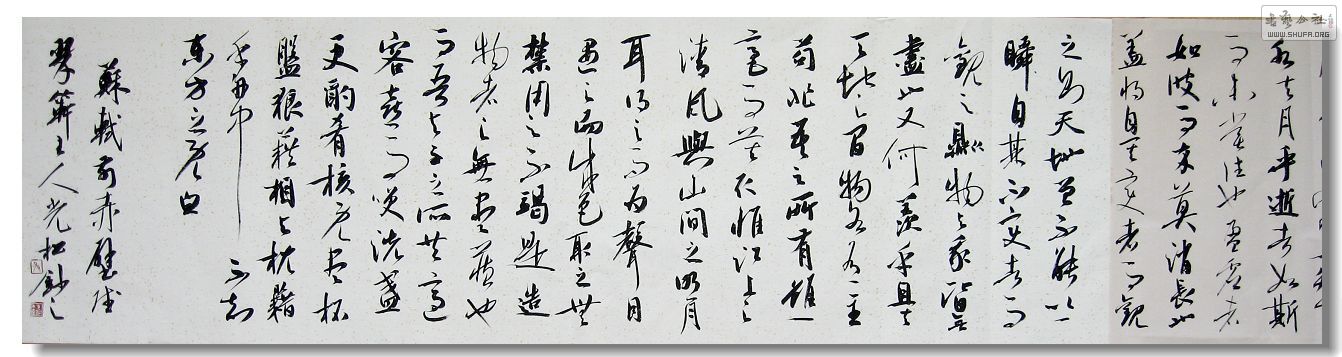 水與月乎逝者如斯
而未嘗往也盈虛者
如彼而卒莫消長也
蓋將自其變者而觀
之則天地曾不能以一
瞬自其不變者而
觀之則物與我皆無
盡也又何羨乎且夫
天地之間物各有主
苟非吾之所有雖一
毫而莫取惟江上之
清風與山間之明月
耳得之而為聲目
遇之而成色取之無
禁用之不竭是造
物者之無盡藏也
而吾與子之所共適
客喜而笑洗盞
更酌肴核既盡杯
盤狼藉相與枕藉
乎舟中不知
東方之既白
蘇軾前赤壁賦
主人光松
书艺公社
WWW.SHUFA.ORG